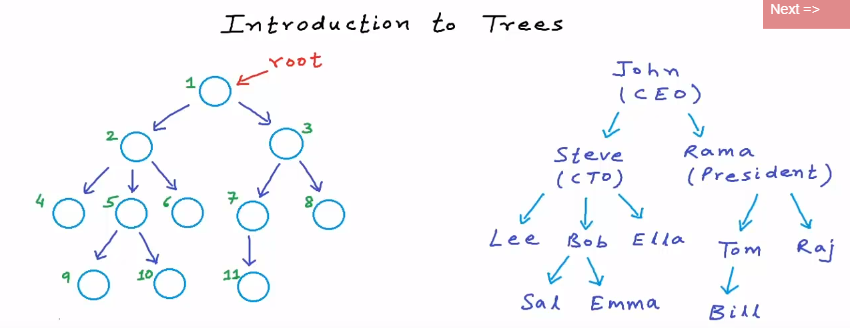 Next =>
Introduction to Trees
root
1
2
3
4
5
6
7
8
9
10
11
John
(CEO)
Steve
(CTO)
Rama
(President)
Lee
Bob
Ella
Tom
Raj
Sal
Emma
Bill